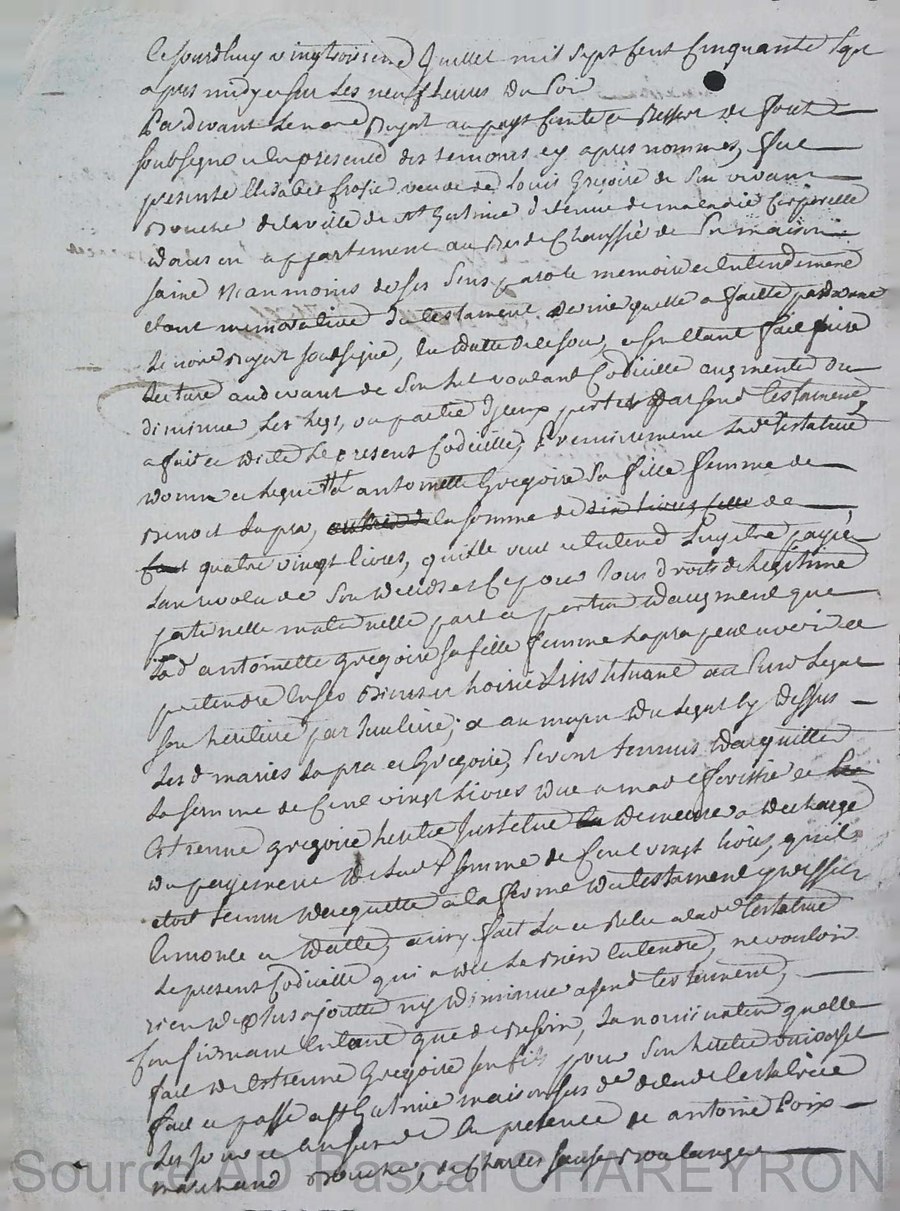 Cejourdhuy vingtroisieme Juillet mil sept cent cinquante sept
apres midy a sur les neuf heures du soir
Pardevant le no.re Royal au pays comté de forest
soubsigné et en presence des temoins cy apres nommés, fut
presente Elisabet veuve de Louis Gregoire de son vivant
Bouché de la ville de St Galmier detenue de maladie corporelle
dans un appartement au res de chaussée de sa maison
saine neanmoins de ses sens parole memoire et entendement
etant memorative du testament quelle a faitte pardevant
le no.re Royal soubsigné, en datte de ce jour, fait faire
lecture audevant de son lit voulant codiciller augmenter ou
diminuer les legs, ou partie d'jceux portés par son d testament
a fait et dicté le present codicille, Premierement lad.e testatrice
donne et legue a antoinette Gregoire sa fille femme de
Benoit Lapra, la somme de de
cent quatre vingt livres, quelle veut et entend luy etre payée
lan revolu de son decéds et ce pour tous droits de legitime
paternelle maternelle part et portion daugment que
la d antoinette gregoire sa fille femme Lapra peut avoir et
pretendre en ses biens et hoirie Linstituant au susd legat
son heritiere particuliere; et au moyen du legat cy dessus
les d mariés Lapra et Gregoire, seront tenus d'acquitter
la somme de cent vingt livres due a et
Estienne gregoire heritier institué demeure dechargé
du payement de lad somme de cent vingt livres, quil
etoit tenu dacquitter a la forme du testament
enoncé et datté, ainsy fait leu et relu a lad.e testatrice
le present codicille qui a dit le bien entendre, ne vouloir
rien de plus ajoutter ny diminuer a son d testament,
confirmant en tant que de besoin, la nomination quelle
fait de Estienne Gregoire son fils pour son heritier universel
fait et passé a St Galmier maison susd.e de lad.e testatrice
les jour et an susd en presence de antoine Poix
marchand Bouché, de Charles Boulanger
Source AD Pascal CHAREYRON